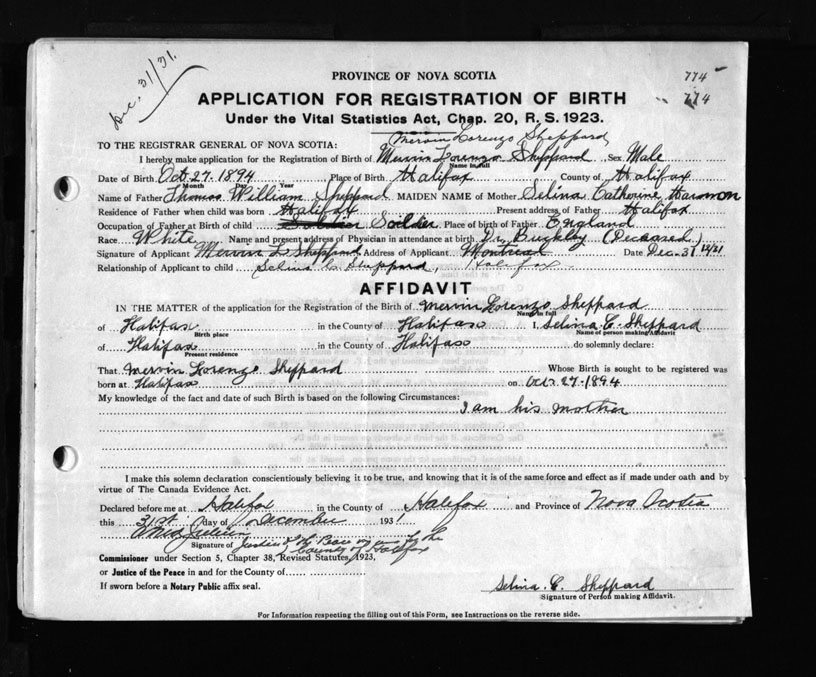 Dec. 31/31.
PROVINCE OF NOVA SCOTIA 774
APPLICATION FOR REGISTRATION OF BIRTH 774
Under the Vital Statistics Act, Chap. 20, R. S. 1923.
Mervin Lorenzo Sheppard
TO THE REGISTRAR GENERAL OF NOVA SCOTIA:
I hereby make application for the Registration of Birth of Mervin Lorenzo Sheppard Sex Male
Name in full
Date of Birth Oct. 27. 1894 Place of Birth Halifax County of Halifax
Month Year
Name of Father Thomas William Sheppard MAIDEN NAME of Mother Selina Catherine Harmon
Residence of Father when child was born Halifax Present address of Father Halifax
Occupation of Father at Birth of child Soldier Soldier Place of birth of Father England
Race White Name and present address of Physician in attendance at birth Dr. Buckley (Deceased)
Signature of Applicant Mervin L Sheppard Address of Applicant Montreal Date Dec. 31
Relationship of Applicant to child Selina C. Sheppard, Halifax
AFFIDAVIT
IN THE MATTER of the application for the Registration of the Birth of Mervin Lorenzo Sheppard
Name in full
of Halifax in the County of Halifax I, Selina C. Sheppard
Birth place Name of person making Affidavit
of Halifax in the County of Halifax do solemnly declare:
Present residence
That Mervin Lorenzo Sheppard Whose Birth is sought to be registered was
born at Halifax on Oct. 27. 1894
My knowledge of the fact and date of such Birth is based on the following Circumstances:
I am his mother
I make this solemn declaration conscientiously believing it to be true, and knowing that it is of the same force and effect as if made under oath and by
virtue of The Canada Evidence Act.
Declared before me at Halifax in the County of Halifax and Province of Nova Scotia
this 31st day of December 1931
Signature of Justice of the Peace in and for the
County of Halifax
Commissioner under Section 5, Chapter 38, Revised Statutes, 1923,
or Justice of the Peace in and for the County of
If sworn before a Notary Public affix seal.
Selina. C. Sheppard
Signature of Person making Affidavit.
For Information respecting the filling out of this Form, see Instructions on the reverse side.